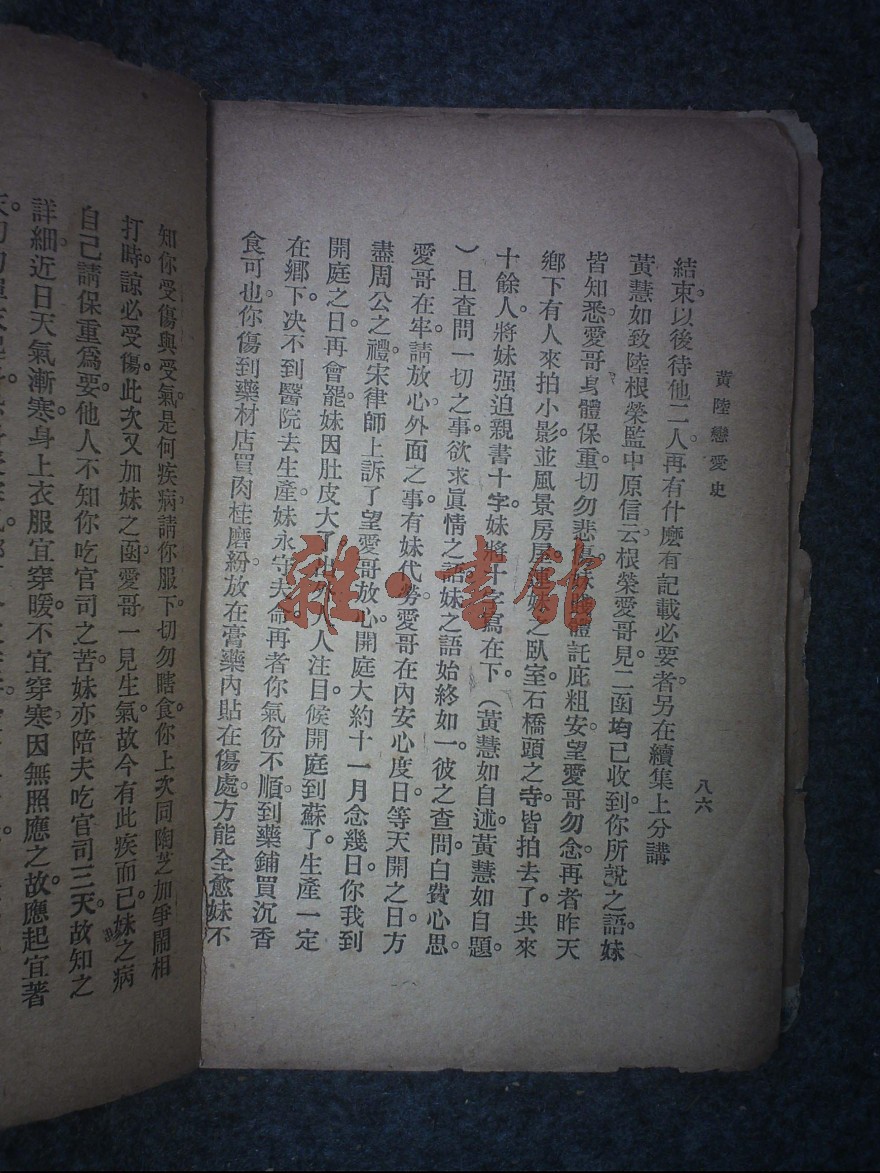 黃陸戀愛史
八六
結束。以後待他二人。再有什麽有記載必要者。另在續集上分講
黃慧如致陸根榮監中原信云。根榮愛哥。見二函均已收到。你所說之語。妹
皆知悉。愛哥身體保重。切勿悲傷。妹 體託庇粗安。望愛哥勿念。再者昨天
鄉下有人來拍小影。並風景房屋。連妹之臥室。石橋頭之寺。皆拍去了。共來
十餘人。將妹强迫親書十字。妹將十字寫在下。(黃慧如自述黃慧如自題
)且查問一切之事。欲求眞情之語。妹之語始終如一。彼之查問。白費心思。
愛哥在牢。請放心。外面之事。有妹代勞。愛哥在內安心度日。等天開之日。方
盡周公之禮。宋律師上訴了。望愛哥放心。開庭大約十一月念幾日。你我到
開庭之日再會罷。妹因肚皮大了。出外人人注目。候開庭到蘇了。生產一定
在鄉下。决不到醫院去生產。妹永守夫命。再者你氣份不順。到藥鋪買沉香
食可也。你傷到藥材店買肉桂。磨紛放在膏藥內。貼在傷處。方能全愈。妹不
知你受傷與受氣。是何疾病。請你服下。切勿瞎食。你上次同陶芝加爭鬧相
打時。諒必受傷。此次又加妹之函。愛哥一見生氣。故今有此疾而已。妹之病
自己請保重爲要。他人不知你吃官司之苦。妹亦陪夫吃官司三天。故知之
詳細。近日天氣漸寒。身上衣服宜穿暖。不宜穿寒。因無照應之故。應起宜著
雜·書館